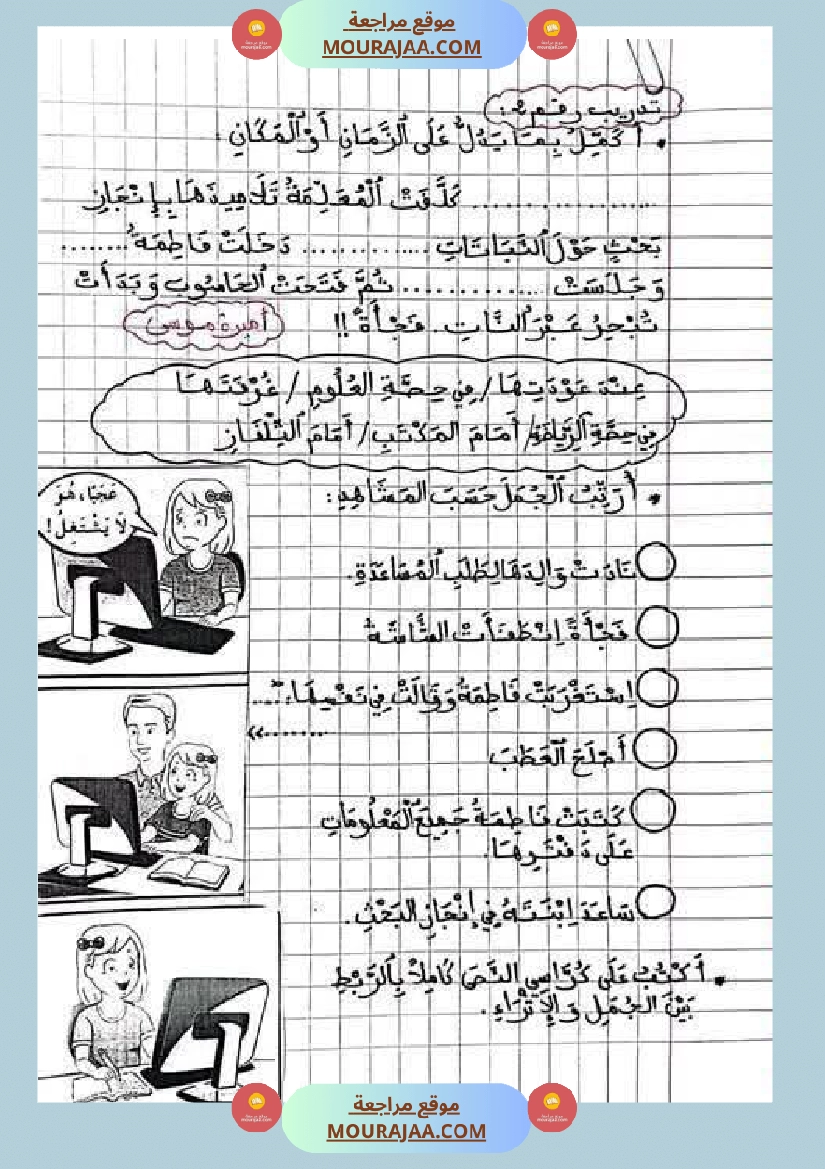 موقع مراجعة
MOURAJAA.COM
تدريب رقم 2:
• أُكَمِّلُ بِمَا يَدُلُّ عَلَى الزَّمَانِ أَوْ الْمَكَانِ:
.................. كَلَّفَتْ الْمُعَلِّمَةُ تَلَامِيذَهَا بِإِنْجَازِ
بَحْثٍ حَوْلَ النَّبَاتَاتِ .............. دَخَلَتْ فَاطِمَةُ ........
وَجَلَسَتْ ................ ثُمَّ فَتَحَتْ الحَاسُوبَ وَبَدَأَتْ
تُبْحِرُ عَبْرَ النَّاتِ. فَجْأَةً!!
أميرة موسى
عِنْدَ عَوْدَتِهَا / فِي حِصَّةِ العُلُومِ / غُرْفَتَهَا
فِي حِصَّةِ الرِّيَاضَةِ / أَمَامَ المَكْتَبِ / أَمَامَ التِّلْفَازِ
• أُرَتِّبُ الْجُمَلَ حَسَبَ المَشَاهِدِ:
عَجَبًا، هُوَ
لَا يَشْتَغِلُ!
نَادَتْ وَالِدَهَا لِطَلَبِ الْمُسَاعَدَةِ.
فَجْأَةً اِنْطَفَأَتْ الشَّاشَةُ
اِسْتَغْرَبَتْ فَاطِمَةُ وَقَالَتْ فِي نَفْسِهَا: "....
.........»
أَصْلَحَ الْعَطَبَ
كَتَبَتْ فَاطِمَةُ جَمِيعَ الْمَعْلُومَاتِ
عَلَى دَفْتَرِهَا.
سَاعَدَ اِبْنَتَهُ فِي إِنْجَازِ البَحْثِ.
• أَكْتُبُ عَلَى كُرَّاسِي النَّصَّ كَامِلاً بِالرَّبْطِ
بَيْنَ الجُمَلِ وَالإِثْرَاءِ.
موقع مراجعة
MOURAJAA.COM